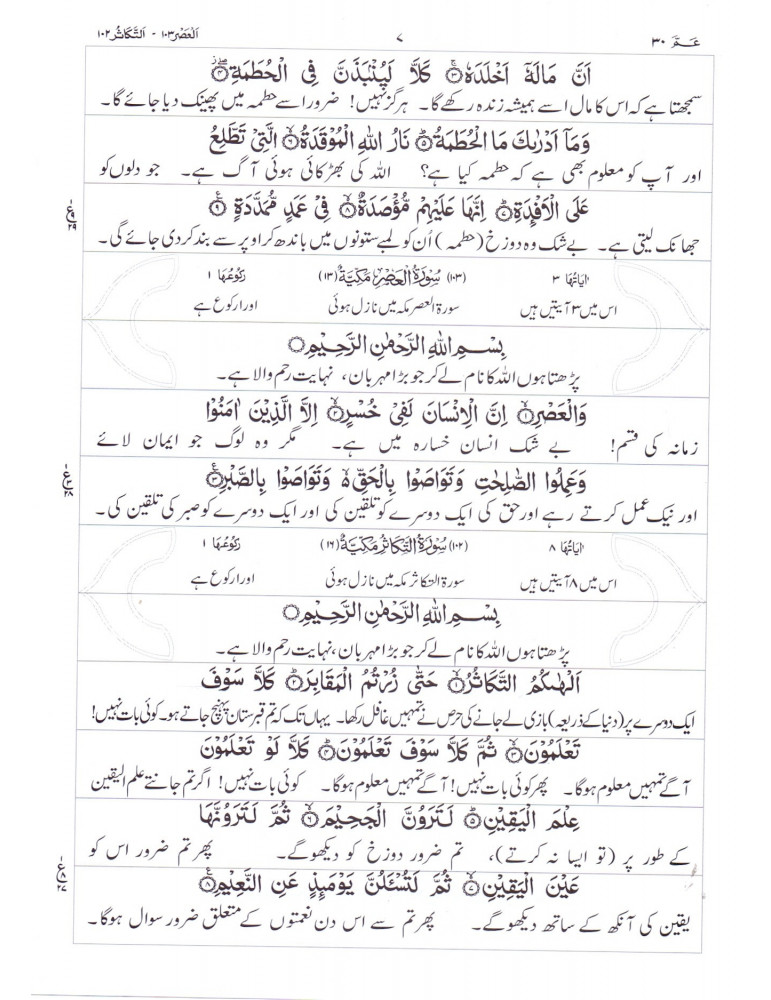 عـمّ ۳۰ ۷ اَلْعَصْر ۱۰۳ - اَلتَّكَاثُر ۱۰۲
اَنَّ مَالَهٗۤ اَخْلَدَهٗ ۚ﴿۳﴾ كَلَّا لَیُنْۢبَذَنَّ فِی الْحُطَمَةِ ﴿۴﴾ۖ
سمجھتا ہے کہ اس کا مال اسے ہمیشہ زندہ رکھے گا۔ ہرگز نہیں! ضرور اسے حطمہ میں پھینک دیا جائے گا۔
وَمَاۤ اَدْرٰىكَ مَا الْحُطَمَةُ ﴿۵﴾ نَارُ اللّٰهِ الْمُوْقَدَةُ ﴿۶﴾ الَّتِیْ تَطَّلِعُ
اور آپ کو معلوم بھی ہے کہ حطمہ کیا ہے؟ اللہ کی بھڑکائی ہوئی آگ ہے۔ جو دلوں کو
عَلَی الْاَفْـِٕدَةِ ﴿۷﴾ اِنَّهَا عَلَیْهِمْ مُّؤْصَدَةٌ ﴿۸﴾ فِیْ عَمَدٍ مُّمَدَّدَةٍ ﴿۹﴾
جھانک لیتی ہے۔ بے شک وہ دوزخ (حطمہ) اُن کو لمبے ستونوں میں باندھ کر اوپر سے بند کردی جائے گی۔
اٰیَاتُهَا ۳ (۱۰۳) سُوْرَةُ الْعَصْرِ مَكِّیَّةٌ (۱۳) رُكُوْعُهَا ۱
اس میں ۳ آیتیں ہیں سورۃ العصر مکہ میں نازل ہوئی اور ا رکوع ہے
بِسْمِ اللّٰهِ الرَّحْمٰنِ الرَّحِیْمِ
پڑھتا ہوں اللہ کا نام لے کر جو بڑا مہربان، نہایت رحم والا ہے۔
وَالْعَصْرِ ﴿۱﴾ اِنَّ الْاِنْسَانَ لَفِیْ خُسْرٍ ﴿۲﴾ اِلَّا الَّذِیْنَ اٰمَنُوْا
زمانہ کی قسم! بے شک انسان خسارہ میں ہے۔ مگر وہ لوگ جو ایمان لائے
وَعَمِلُوا الصّٰلِحٰتِ وَتَوَاصَوْا بِالْحَقِّ ۙ۬ وَتَوَاصَوْا بِالصَّبْرِ ﴿۳﴾
اور نیک عمل کرتے رہے اور حق کی ایک دوسرے کو تلقین کی اور ایک دوسرے کو صبر کی تلقین کی۔
اٰیَاتُهَا ۸ (۱۰۲) سُوْرَةُ التَّكَاثُرِ مَكِّیَّةٌ (۱۶) رُكُوْعُهَا ۱
اس میں ۸ آیتیں ہیں سورۃ التکاثر مکہ میں نازل ہوئی اور ا رکوع ہے
بِسْمِ اللّٰهِ الرَّحْمٰنِ الرَّحِیْمِ
پڑھتا ہوں اللہ کا نام لے کر جو بڑا مہربان، نہایت رحم والا ہے۔
اَلْهٰىكُمُ التَّكَاثُرُ ﴿۱﴾ حَتّٰی زُرْتُمُ الْمَقَابِرَ ﴿۲﴾ كَلَّا سَوْفَ
ایک دوسرے پر (دنیا کے ذریعہ) بازی لے جانے کی حرص نے تمہیں غافل رکھا۔ یہاں تک کہ تم قبرستان پہنچ جاتے ہو۔ کوئی بات نہیں!
تَعْلَمُوْنَ ﴿۳﴾ ثُمَّ كَلَّا سَوْفَ تَعْلَمُوْنَ ﴿۴﴾ كَلَّا لَوْ تَعْلَمُوْنَ
آگے تمہیں معلوم ہوگا۔ پھر کوئی بات نہیں! آگے تمہیں معلوم ہوگا۔ کوئی بات نہیں! اگر تم جانتے علم الیقین
عِلْمَ الْیَقِیْنِ ﴿۵﴾ لَتَرَوُنَّ الْجَحِیْمَ ﴿۶﴾ ثُمَّ لَتَرَوُنَّهَا
کے طور پر (تو ایسا نہ کرتے)، تم ضرور دوزخ کو دیکھوگے۔ پھر تم ضرور اس کو
عَیْنَ الْیَقِیْنِ ﴿۷﴾ ثُمَّ لَتُسْـَٔلُنَّ یَوْمَىِٕذٍ عَنِ النَّعِیْمِ ﴿۸﴾
یقین کی آنکھ کے ساتھ دیکھوگے۔ پھر تم سے اس دن نعمتوں کے متعلق ضرور سوال ہوگا۔